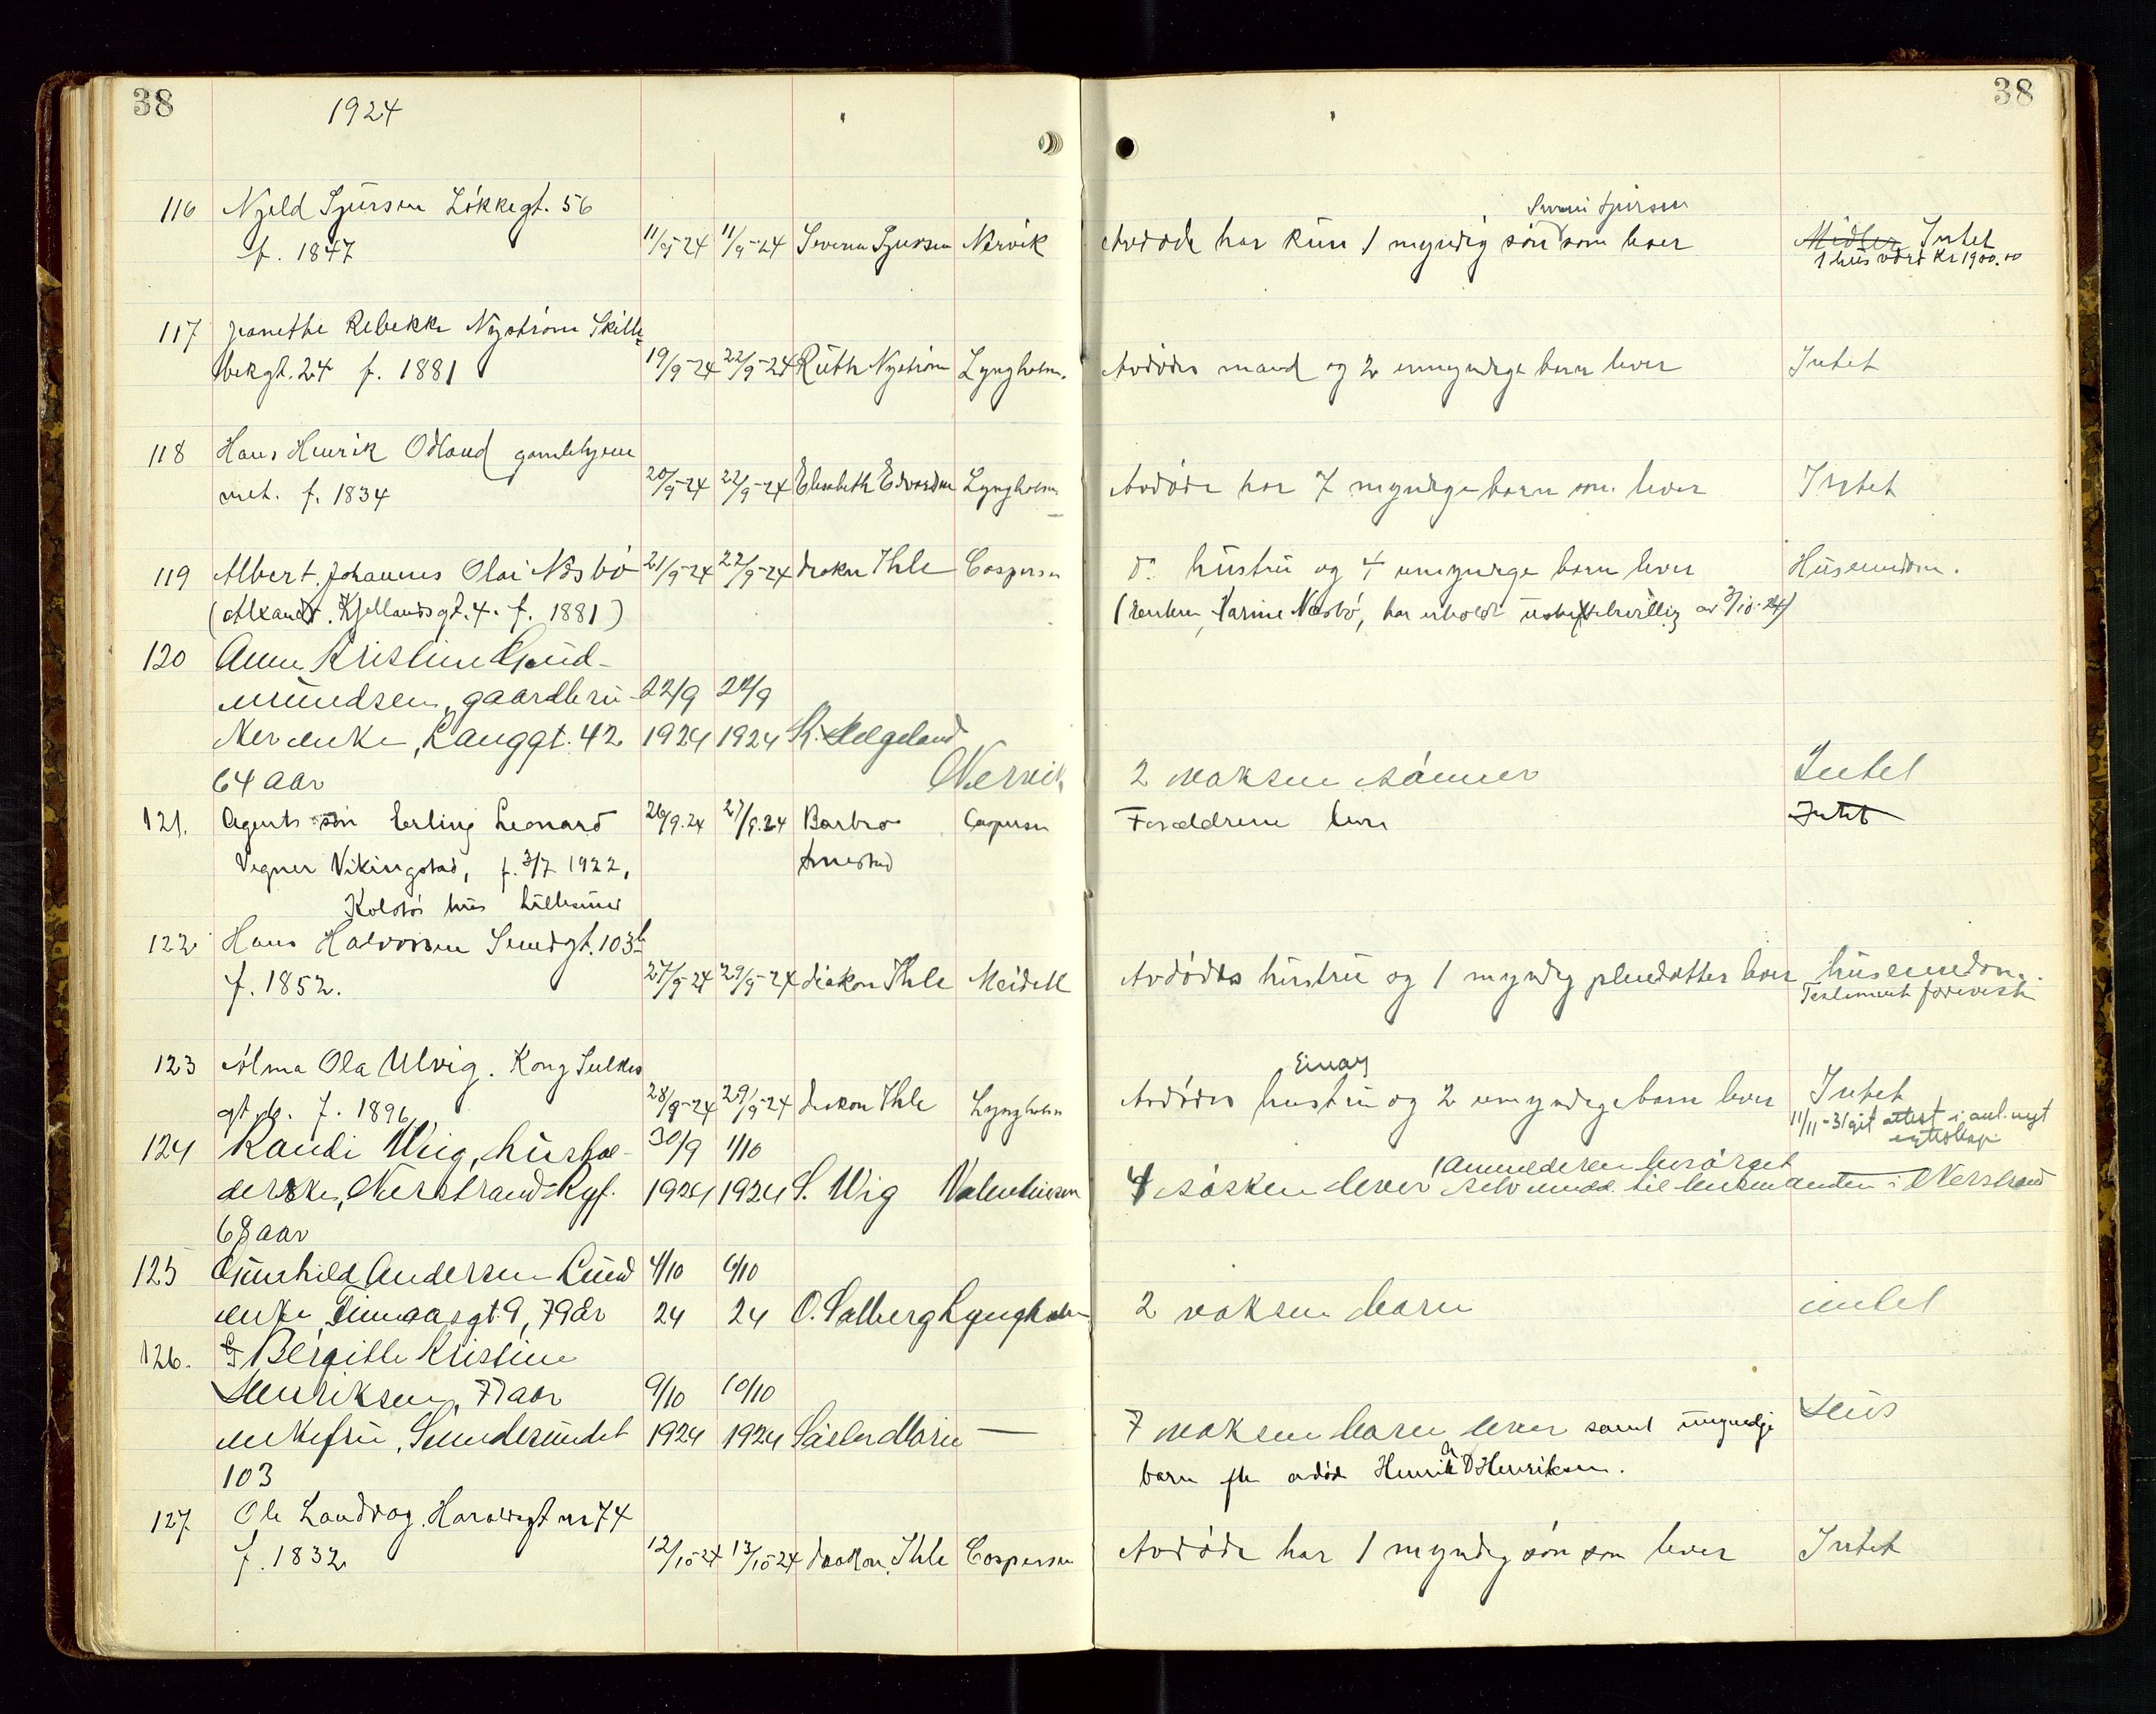 38
1924
38
116 Njeld Sjursen Løkkegt. 56
f. 1847 11/9-24 11/9-24 Severin Sjursen Nervik Avdøde har kun 1 myndig søn som lever Midler Intet
Severin Sjursen
1 hus verd Kr 1900.00
117 Jeanethe Rebekka Nystrøm Skille
bekgt. 24 f. 1881 19/9-24 22/9-24 Ruth Nystrøm Lyngholm. Avdødes mand og 2 umyndige barn lever Intet
118 Hans Henrik Odland gamlehjem
met. f. 1834 20/9-24 22/9-24 Elisabeth Edvardsen Lyngholm Avdøde har 7 myndige barn som lever Intet
119 Albert Johannes Olai Nesbø 21/9-24 22/9-24 diakon Ihle Casperson d: hustru og 4 umyndige barn lever Huseiendom.
(Alxandr. Kjellandsgt. 4. f. 1881) (enken, Karine Nesbø, har erholdt uskiftebevillig av 3/10-24)
120 Anna Kristine Gud-
mundsen, gaardbru- 22/9 24/9
kerenke, Langgt. 42 1924 1924 K. Helgeland
64 aar Nervik 2 voksne sønner Intet
121. Agents søn Erling Leonard 26/9.24 27/9.24 Barbro Casperson Forældrene lever Intet
Vegner Vikingstad, f. 3/7 1922, Amestad
122 Hans Halvorsen Sundgt. 103b
f. 1852. 27/9-24 29/9-24 diakon Ihle Meidell Avdødes hustru og 1 myndig pleiedatter lever huseiendom.
Testament forevist
123 Alma Ola Ulvig. Kong Sulkes
Einar
gt. f. 1896 28/9-24 29/9-24 diakon Ihle Lyngholm Avdødes hustru og 2 umyndige barn lever Intet
11/11-31 git attest i anl. nyt
egteskap
124 Randi Wiig, hushol- 30/9 1/10
derske, Nerstrand Rgf. 1924 1924 S. Wig Valentinsen 4 søsken lever (Anmelderen besørget selv medd. til lensmanden i Nerstrand
68 aar
125 Gunhild Andersen Lund 4/10 6/10
enke, 9, 79 år 24 24 O. Salberg Lyngholm 2 voksne barn intet
126. Bergitte Kristine
Henriksen, 77 aar 9/10 10/10
enkefru, Sundesundet 1924 1924 Søster Marie — 7 voksne barn lever samt umyndige Hus
103 barn efter avdøde Henrik A Henriksen.
127 Ole Landvag. Haraldsgt nr 74
f. 1832 12/10-24 13/10-24 diakon Ihle Casperson Avdøde har 1 myndig søn som lever Intet